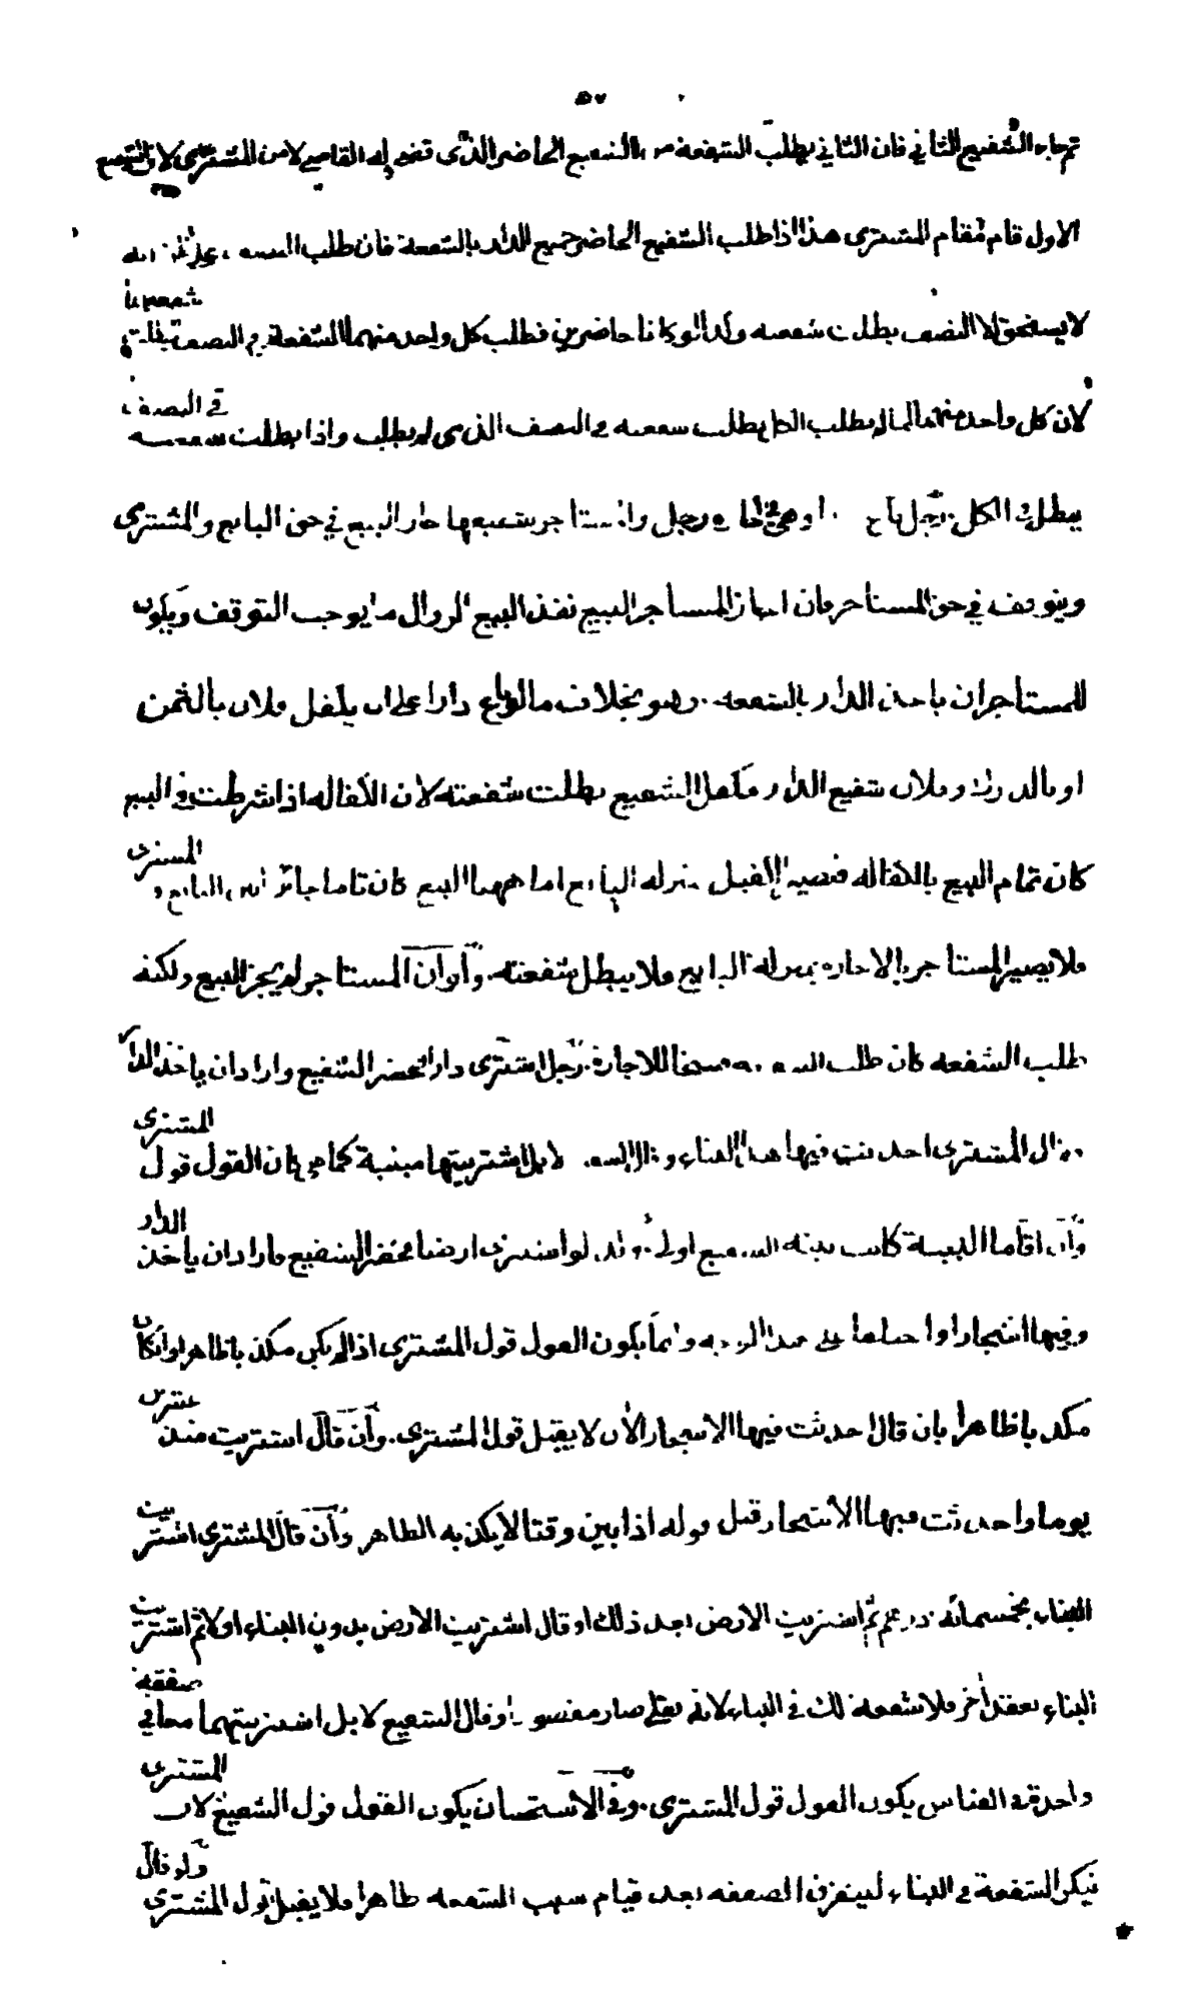 ٥٧
ثم جاء الشفيع الثاني فان الثاني يطلب الشفعة من الشفيع الحاضر الذي قضى له القاضي لا من المشتري لان الشفيع
الاول قام مقام المشتري هذا اذا طلب الشفيع الحاضر جميع الدار بالشفعة فان طلب النصف على انه
لا يستحق الا النصف بطلت شفعته وكذا لو كانا حاضرين فطلب كل واحد منهما الشفعة في النصف بطلت شفعتهما
لان كل واحد منهما لما لم يطلب الكل بطلت شفعته في النصف الذي لم يطلب واذا بطلت شفعته في النصف
بطلت في الكل رجل باع وهي في اجارة رجل والمستاجر شفيعها جاز البيع في حق البايع والمشتري
ويتوقف في حق المستاجر فان اجاز المستأجر البيع نفذ البيع لزوال ما يوجب التوقف ويكون
للمستأجر ان ياخذ الدار بالشفعة وهو بخلاف ما لو باع دارا على ان يكفل فلان بالثمن
او بالدرك وفلان شفيع الدار فكفل الشفيع بطلت شفعته لان الكفالة اذا شرطت في البيع
كان تمام البيع بالكفالة فيصير الكفيل بمنزلة البايع اما ههنا البيع كان تاما جائزا بين البايع والمشتري
فلا يصير المستأجر بالاجازة بمنزلة البايع فلا يبطل شفعته وان ان المستاجر لم يجز البيع ولكنه
طلب الشفعة كان طلب الشفعة فسخا للاجارة رجل اشترى دارا فحضر الشفيع واراد ان ياخذ الدار
فقال المشتري احدثت فيها هذا البناء وقال الشفيع لا بل اشتريتها مبنية كما هي كان القول قول المشتري
وان اقاما البينة كانت بينة الشفيع اولى وكذا لو اشترى ارضا فحضر الشفيع فاراد ان ياخذ الدار
وفيها اشجار واختلفا على هذا الوجه وانما يكون القول قول المشتري اذا لم يكن مكذبا ظاهرا وان كان
مكذبا ظاهرا بان قال احدثت فيها الاشجار الآن لا يقبل قول المشتري وان قال اشتريت منذ عشرين
يوما واحدثت فيها الاشجار قبل قوله اذا بين وقتا لا يكذبه الظاهر وان قال المشتري اشتريت
البناء بخمسمائة درهم ثم اشتريت الارض بعد ذلك او قال اشتريت الارض بدون البناء اولا ثم اشتريت
البناء بعقد آخر فلا شفعة لك في البناء لانه نقلي صار مقصودا وقال الشفيع لا بل اشتريتهما معا في صفقة
واحدة ففي القياس يكون القول قول المشتري وفي الاستحسان يكون القول قول الشفيع لان المشتري
ينكر الشفعة في البناء لتفرق الصفقة بعد قيام سبب الشفعة ظاهرا فلا يقبل قول المشتري ولو قال